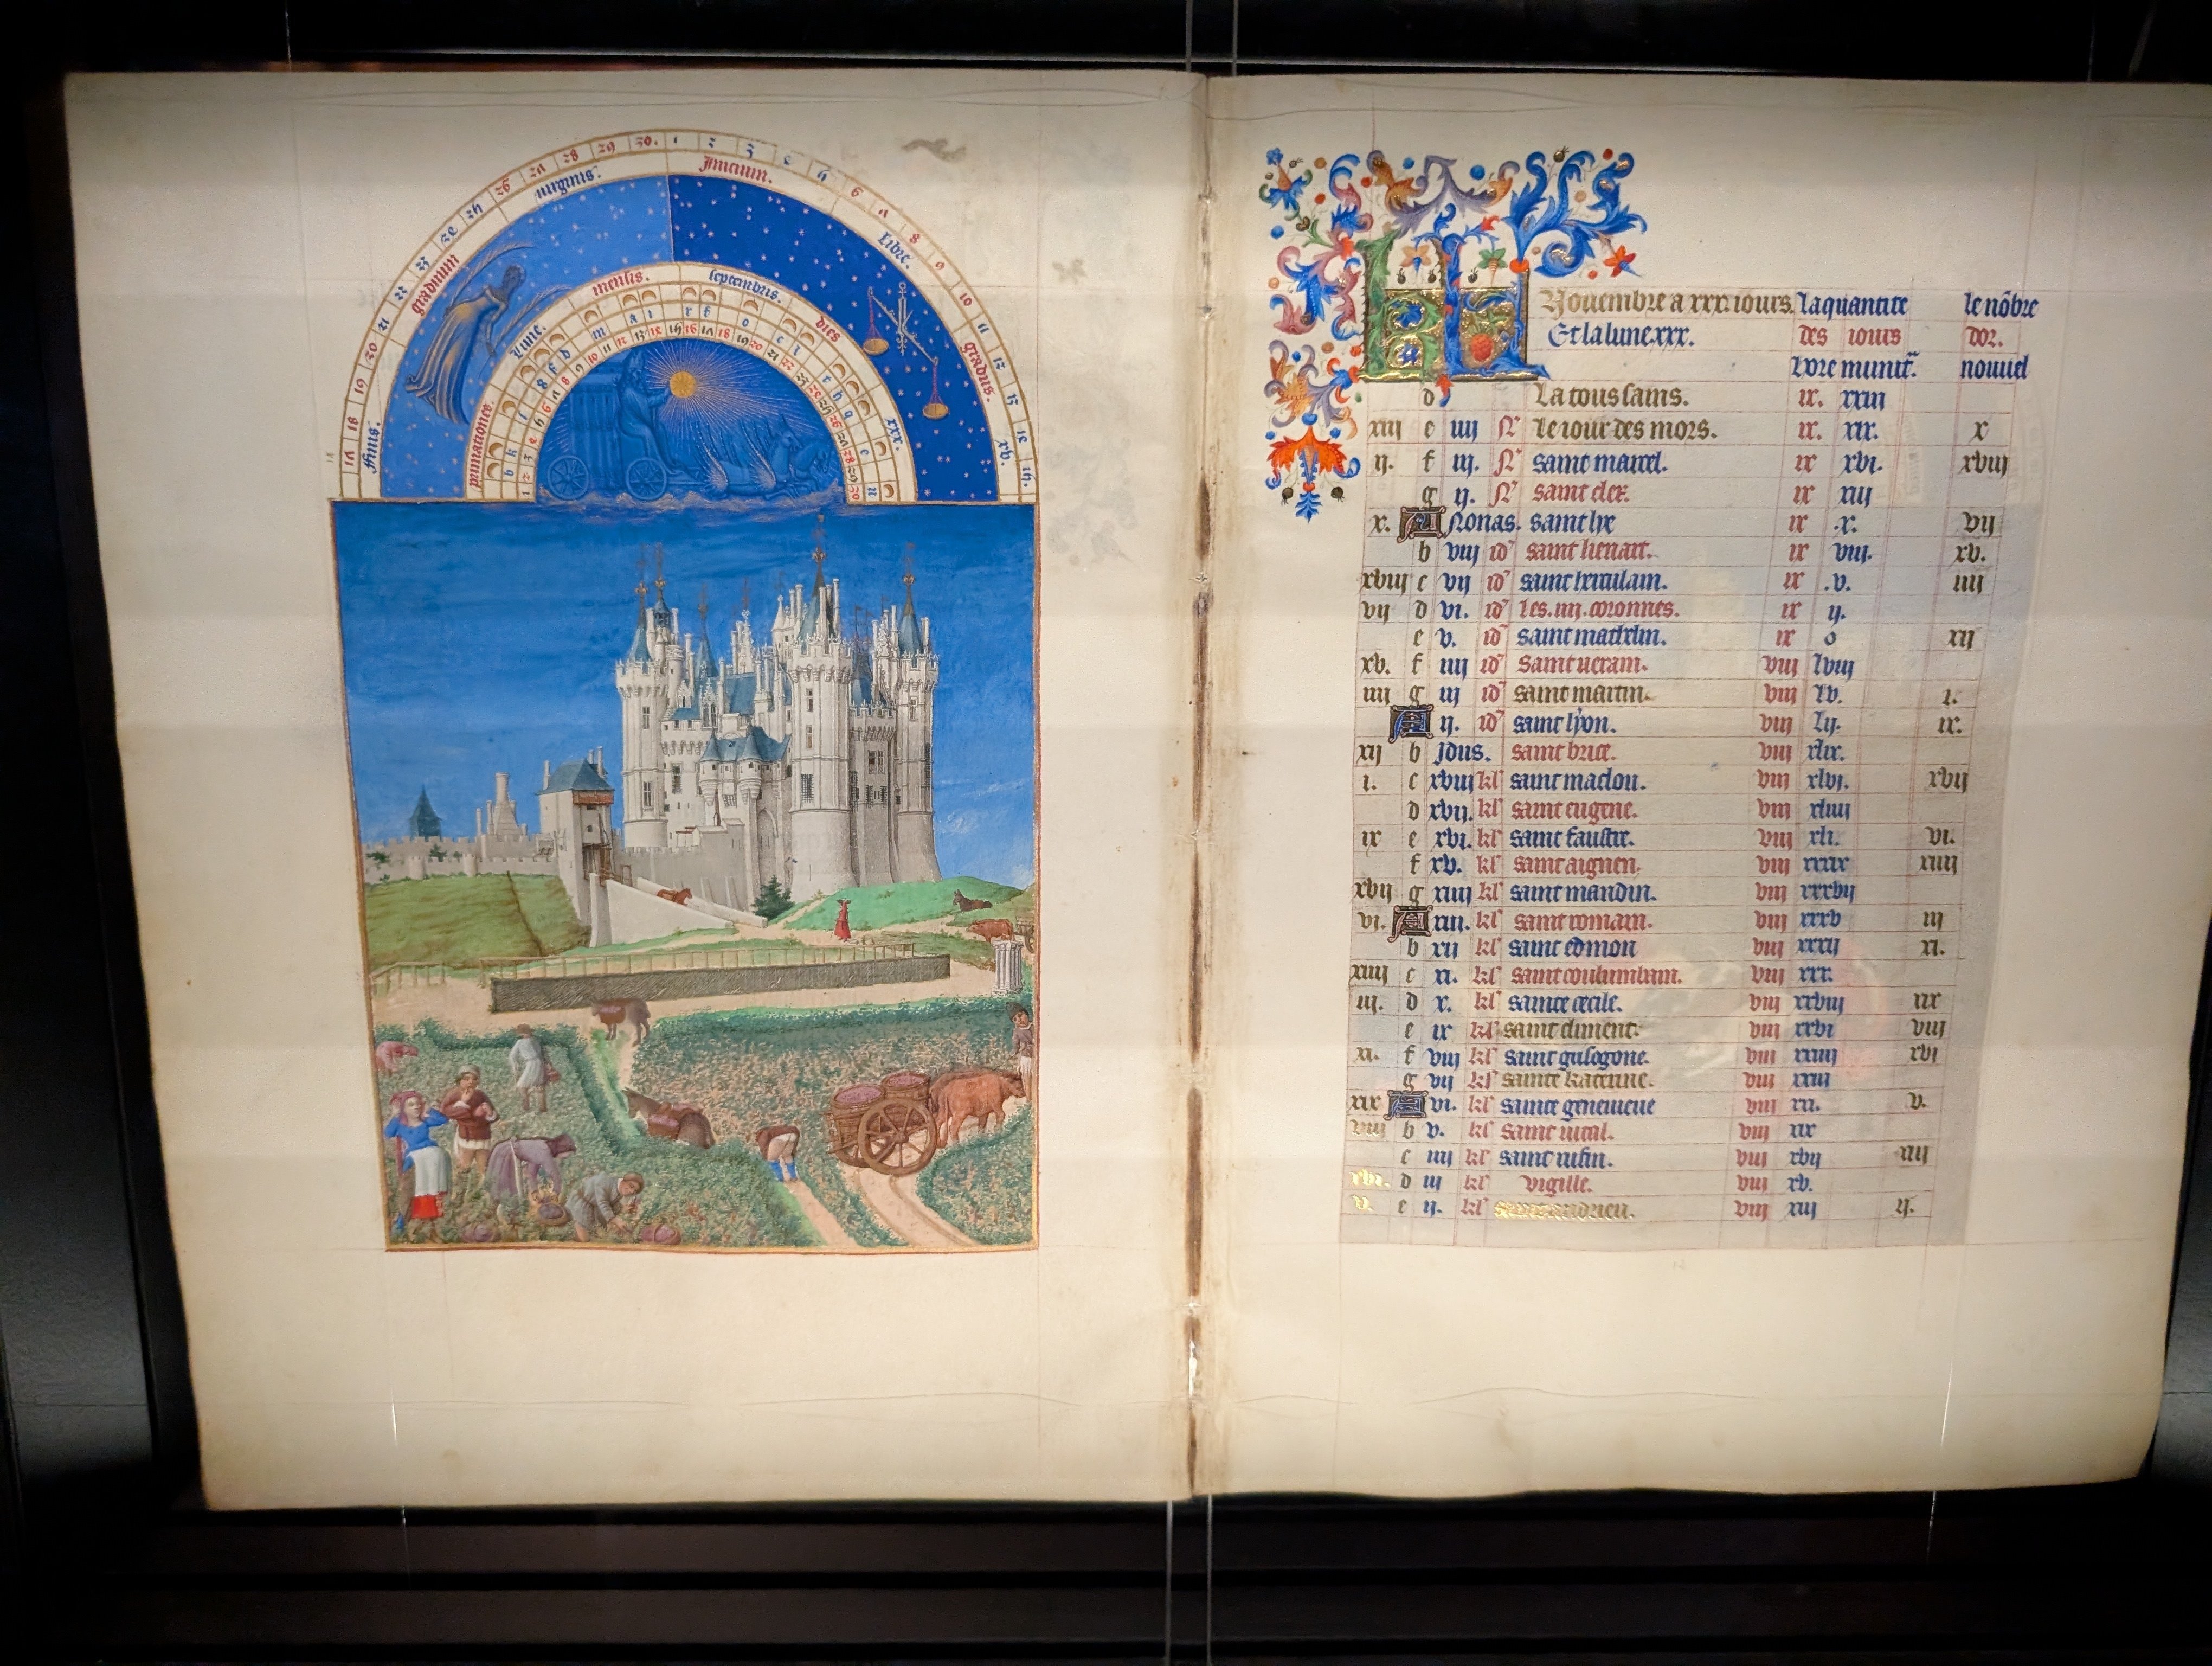 Finis. graduum virginis. Inicium. Libre. gradus. xv.
primationes. lune. mensis. septembris. dies xxx.
Nouembre a xxx. iours. la quantite le nõbre
Et la lune xxx. des iours dor.
hore minut. nouuel
d La toussains. ix. xxiii
xiii e iiii N' le iour des mors. ix. xix. x
ij. f iij. N' saint marcel. ix xvi. xviij
g ij. N' saint cler. ix xiij
x. A Nonas. saint lye ix .x. vij
b viij id' saint lienart. ix viij. xv.
xviij c vij id' saint herculain. ix .v. iiij
vij d vi. id' les .iiij. coronnes. ix ij.
e v. id' saint mathelin. ix o xij
xv. f iiij id' saint veram. viij lviij
iiij g iij id' saint martin. viij lv. i.
A ij. id' saint lyon. viij lij. ix.
xij b Jdus. saint brice. viij xlix.
i. c xviij kl' saint maclou. viij xlvj. xvij
d xvij. kl' saint eugene. viij xliiij
ix e xvi. kl' saint faustin. viij xli. vi.
f xv. kl' saint aignen. viij xxxix xiiij
xvij g xiiij kl' saint mandin. viij xxxvij
vi. A xiii. kl' saint romain. viij xxxv iij
b xij kl' saint edmon viij xxxij xi.
xiiij c xi. kl' saint coulumbam. viij xxx.
iij. d x. kl' sainte cecile. viij xxviij xix
e ix kl' saint climent. viij xxvi viij
xi. f viij kl' saint grisogone. viij xxiiij xvi
g vij kl' sainte katerine. viij xxiii
xix A vi. kl' sainte genevieve viij xxi. v.
viij b v. kl' saint vital. viij xix
c iiij kl' saint rufin. viij xvij xiij
xvi. d iij kl' vigille. viij xv.
v. e ij. kl' saint andrieu. viij xiij ij.